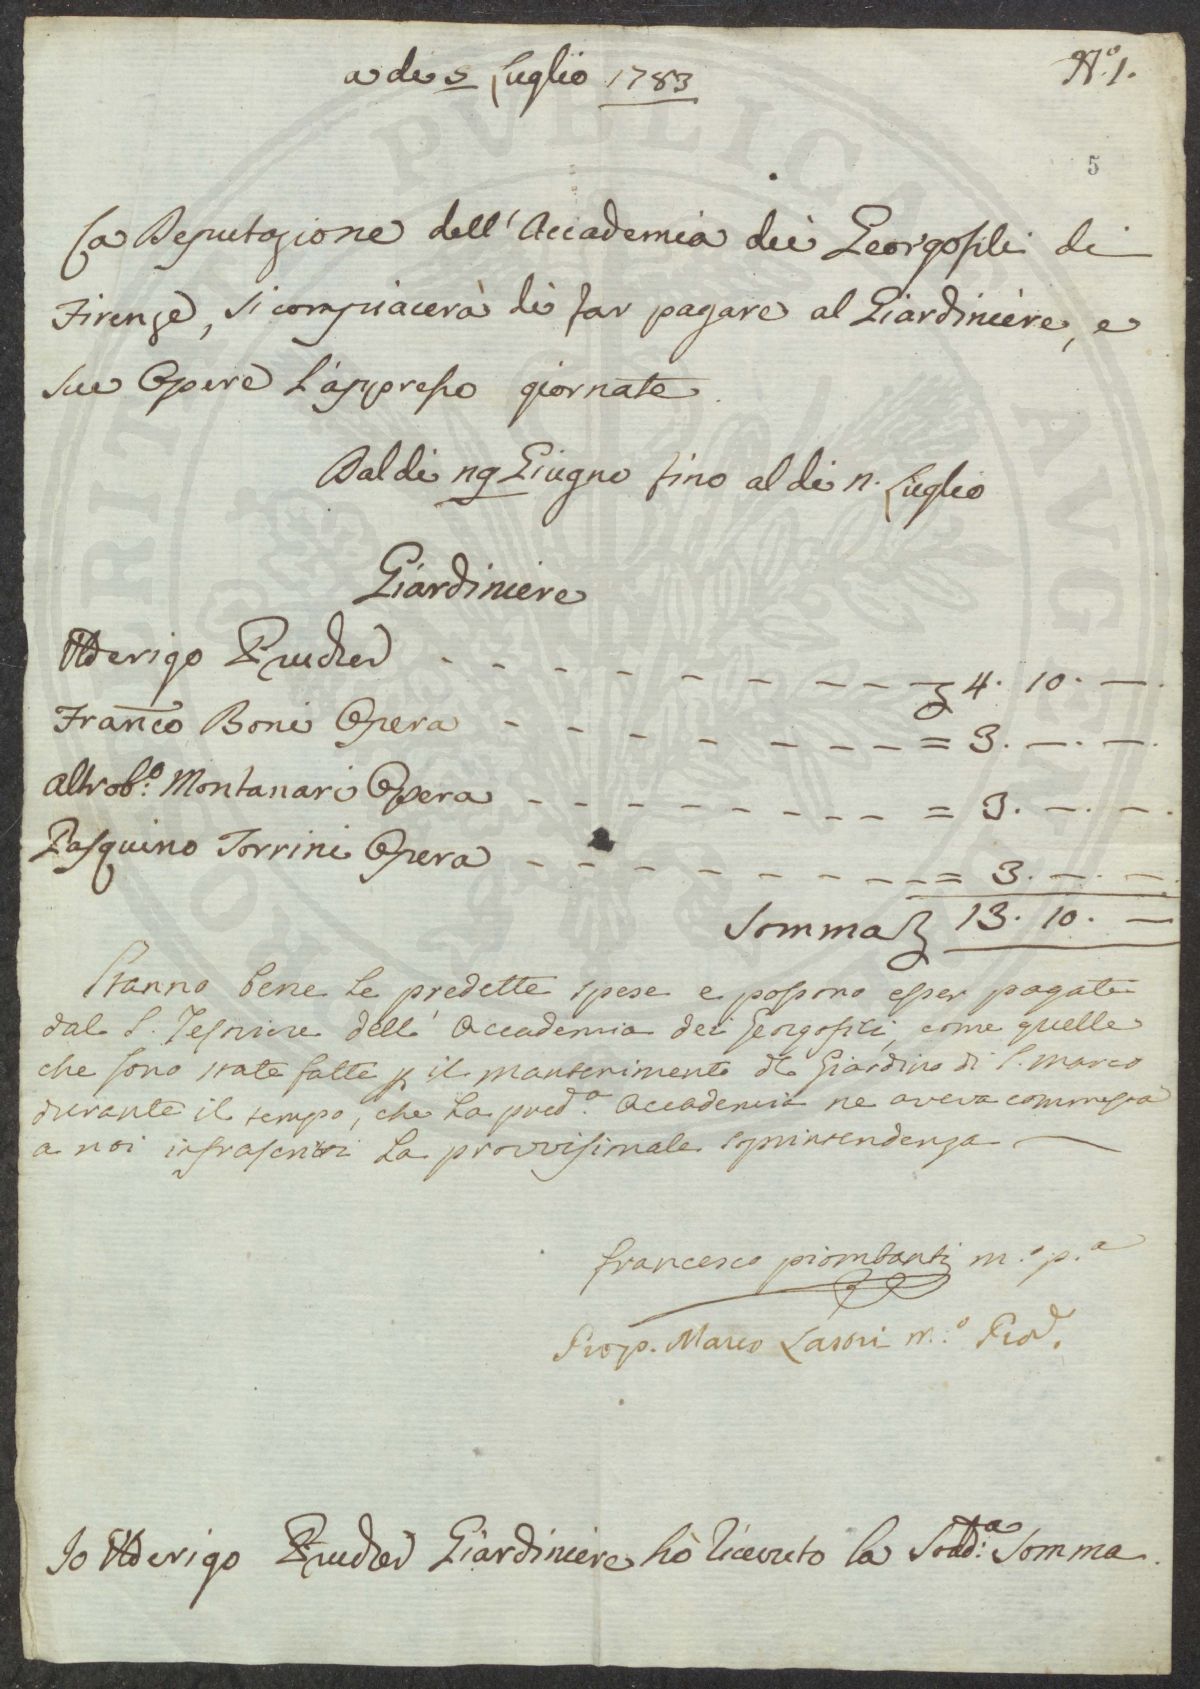 a di 5 Luglio 1783
N.º 1.
5
La Deputazione dell'Accademia dei Georgofili di
Firenze, si compiacerà di far pagare al Giardiniere, e
sue Opere l'appresso giornate
Dal di 29 Giugno fino al di 2. Luglio
Giardiniere
Arrigo
4. 10. —.
Franco Boni Opera = 3. —. —.
Montanari Opera = 3. —. —.
Pasquino Torrini Opera = 3. —. —.
Somma 13. 10. —
Stanno bene le predette spese e possono esser pagate
dal S. Tesoriere dell'Accademia dei Georgofili, come quelle
che sono state fatte p il mantenimento del Giardino di S. Marco
durante il tempo, che la pred.ª Accademia ne aveva commessa
a noi infrascritti la provvisionale soprintendenza
Francesco Piombanti m.º p.ª
Prop. Marco Lastri m.º
Io Giardiniere hò riceuto la Sudd.ª Somma.